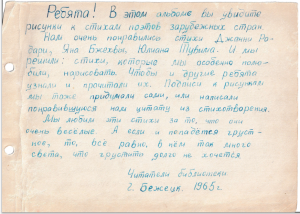 Ребята! В этом альбоме вы увидите
рисунки к стихам поэтов зарубежных стран.
Нам очень понравились стихи Джанни Ро-
дари, Яна Бжехвы, Юлиана Тувима. И мы
решили: стихи, которые мы особенно полю-
били, нарисовать. Чтобы и другие ребята
узнали и прочитали их. Подписи к рисункам
мы тоже придумали сами, или написали
понравившуюся нам цитату из стихотворения.
Мы любим эти стихи за то, что они
очень веселые. А если и попадётся груст-
ное, то, всё равно, в нём так много
света, что грустить долго не хочется.
Читатели библиотеки
г. Бежецк. 1965 г.